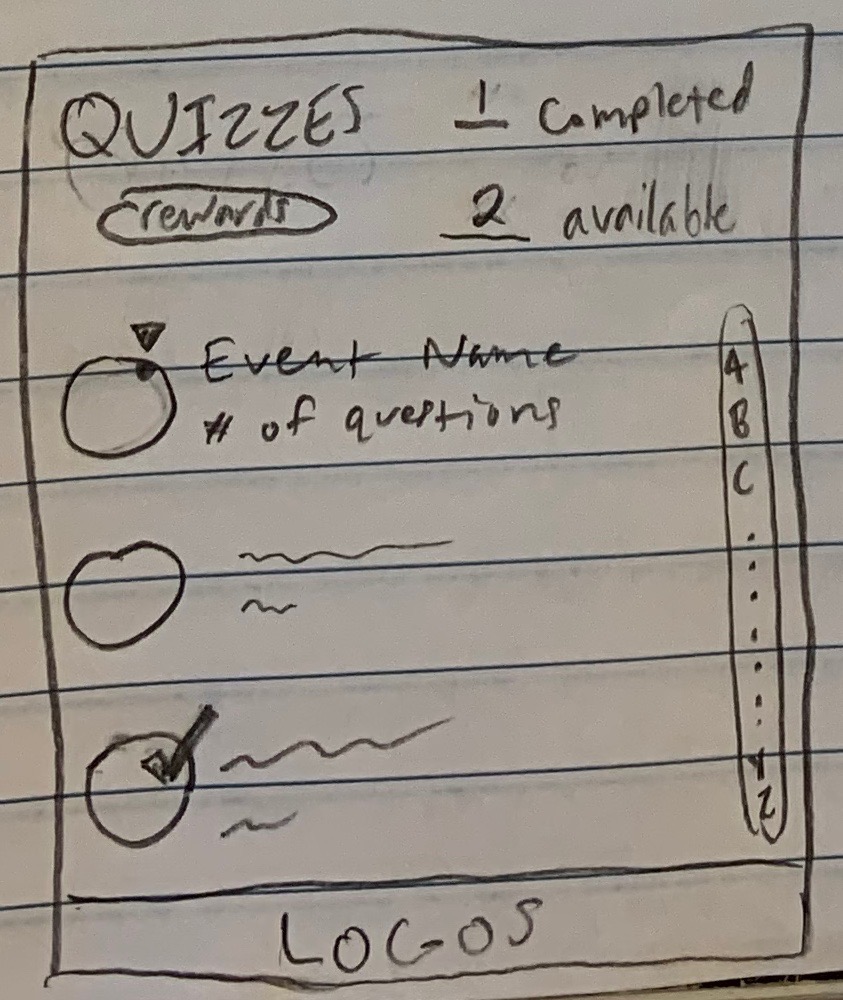 QUIZZES 1 completed
rewards 2 available
Event Name
# of questions
A
B
C
Y
Z
LOGOS